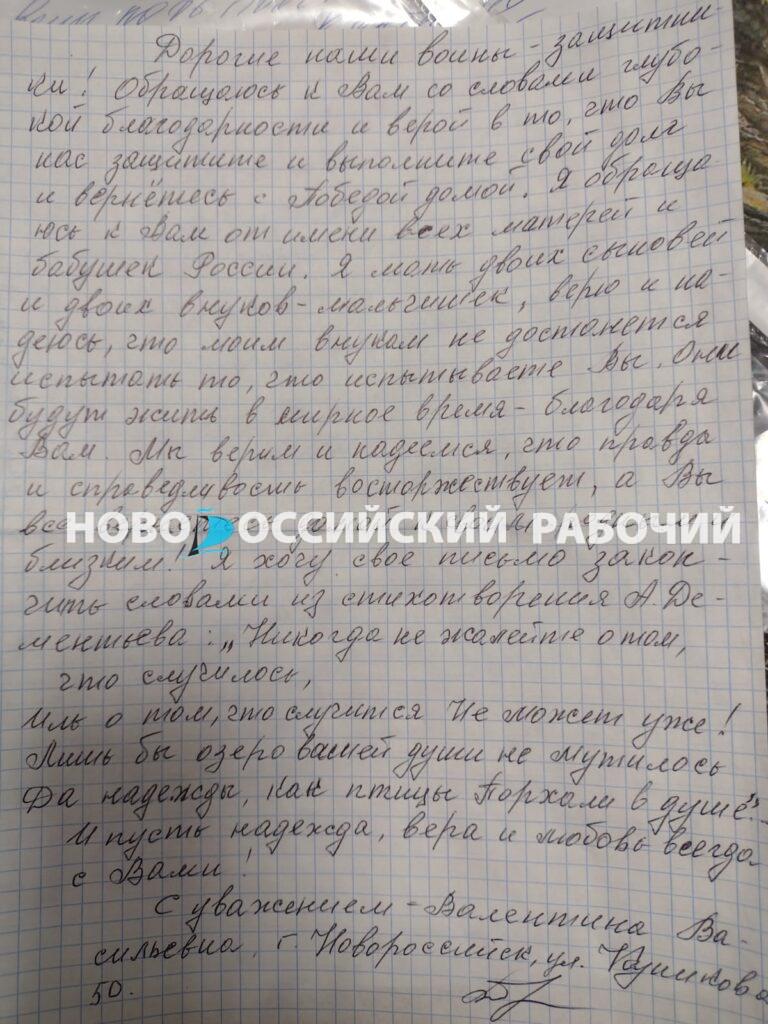 Дорогие наши воины - защитни-
ки! Обращаюсь к Вам со словами глубо-
кой благодарности и верой в то, что Вы
нас защитите и выполните свой долг
и вернётесь с Победой домой. Я обраща-
юсь к Вам от имени всех матерей и
бабушек России. Я мать двоих сыновей
и двоих внуков-мальчишек, верю и на-
деюсь, что моим внукам не достанется
испытать то, что испытываете Вы. Они
будут жить в мирное время - благодаря
Вам. Мы верим и надеемся, что правда
и справедливость восторжествует, а Вы
все
НОВОРОССИЙСКИЙ РАБОЧИЙ
близким! Я хочу свое письмо закон-
чить словами из стихотворения А. Де-
ментьева: „Никогда не жалейте о том,
что случилось,
Иль о том, что случится Не может уже!
Лишь бы озеро вашей души не мутилось
Да надежды, как птицы Порхали в душе."
И пусть надежда, вера и любовь всегда
с Вами!
С уважением - Валентина Ва-
сильевна, г. Новороссийск, ул.
50.